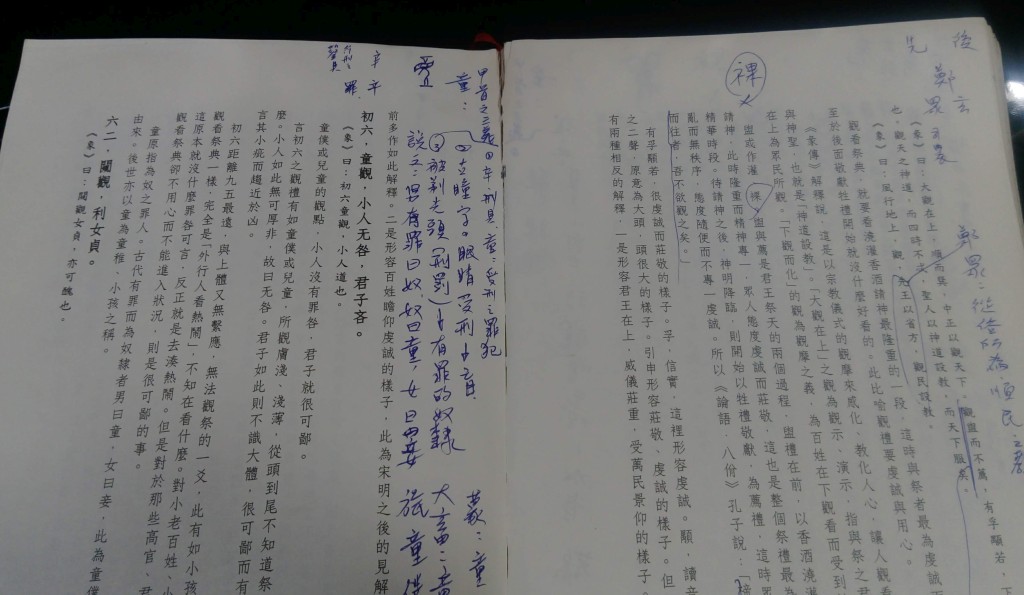 後 鄭玄
先 鄭眾
《彖》曰：大觀在上，順而巽，中正以觀天下，觀盥而不薦，有孚顒若，下
也，觀天之神道，而四時不忒，聖人以神道設教，而天下服矣。
《象》曰：風行地上，觀，先王以省方，觀民設教。
觀看祭典，就要看澆灌香酒請神最隆重的一段，這時與祭者最為虔誠
至於後面敬獻牲禮開始就沒什麼好看的。此比喻觀禮要虔誠與用心。
《彖傳》解釋說，這是以宗教儀式的觀摩來感化、教化人心，讓人觀看
與神聖，也就是「神道設教」。「大觀在上」之觀為觀示、演示，指與祭之君
在上為眾民所觀。「下觀而化」的觀為觀摩之義，為百姓在下觀看而受到
盥或作灌（裸），盥與薦是君王祭天的兩個過程，盥禮在前，以香酒澆
請神，此時隆重而精神專一，眾人態度虔誠而莊敬，這也是整個祭禮最為
精華時段。待請神之後，神明降臨，則開始以牲禮敬獻，為薦禮，這時
亂而無秩序，態度隨便而不專一虔誠。所以《論語．八佾》孔子說：「禘
而往者，吾不欲觀之矣。」
裸
有孚顒若，很虔誠而莊敬的樣子。孚，信實，這裡形容虔誠。顒，讀音
之二聲，原意為大頭，頭很大的樣子。引申形容莊敬、虔誠的樣子。但
有兩種相反的解釋，一是形容君王在上，威儀莊重，受萬民景仰的樣子。
童：受刑之罪犯
童：
眼睛受刑
被剃光頭（刑罰）有罪的奴隸
說文：男有罪曰奴奴曰童，女曰妾
前多作如此解釋。二是形容百姓瞻仰虔誠的樣子，此為宋明之後的見解
初六，童觀，小人无咎，君子吝。
《象》曰：初六童觀，小人道也。
童僕或兒童的觀點，小人沒有罪咎，君子就很可鄙。
言初六之觀禮有如童僕或兒童，所觀膚淺、淺薄，從頭到尾不知道祭
麼。小人如此無可厚非，故曰无咎。君子如此則不識大體，很可鄙而有
言其小疵而趨近於凶。
初六距離九五最遠，與上體又無繫應，無法觀祭的一爻，此有如小孩
觀看祭典一樣，完全是「外行人看熱鬧」，不知在看什麼。對小老百姓、小
這原本就沒什麼罪咎可言，反正就是去湊熱鬧。但是對於那些高官、君
觀看祭典卻不用心而不能進入狀況，則是很可鄙的事。
童原指為奴之罪人。古代有罪而為奴隸者男曰童，女曰妾，此為童僕
由來。後世亦以童為童稚、小孩之稱。
六二，闚觀，利女貞。
《象》曰：闚觀女貞，亦可醜也。